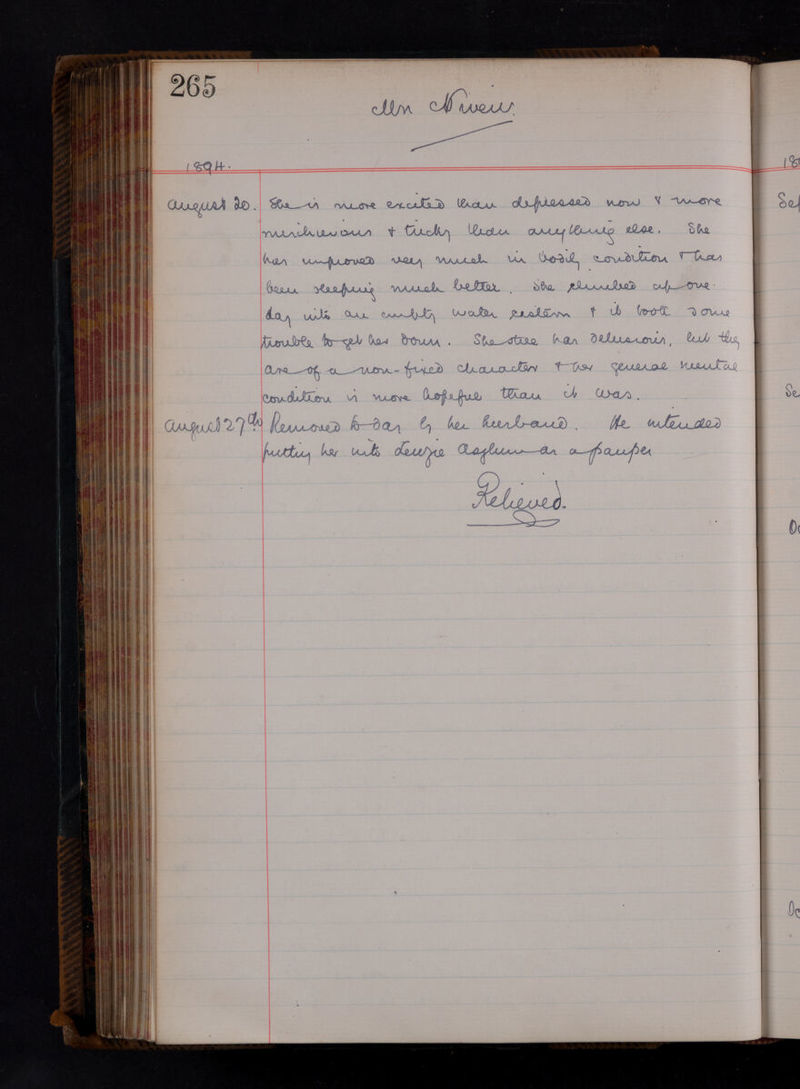 265
Mrs Niven
1894.
August 20. She is more excited than depressed now & more
mischievous & tricky than anything else. She
has improved very much in bodily condition & has
been sleeping much better. She climbed up one
day into an empty water cistern & it took some
trouble to get her down. She still has delusions, but they
are of a non-fixed character & her general mental
condition is more hopeful than it was.
August 27th Removed to-day by her husband. He intended
putting her into Lenzie Asylum as a pauper
Relieved.
18
Se
Se